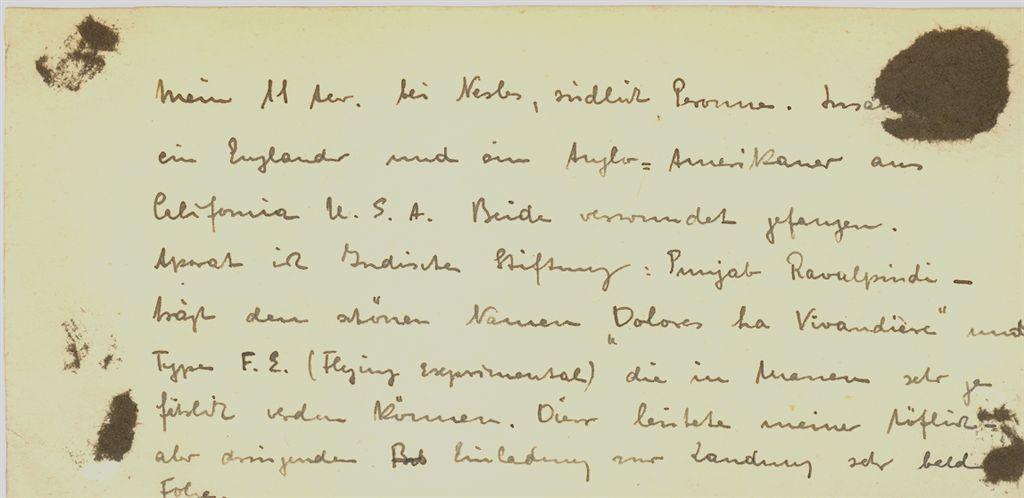 Mein 11 ter. bei Nesles, südlich Peronne. Insa
ein Engländer und ein Anglo=Amerikaner aus
California U. S. A. Beide verwundet gefangen.
Aparat ist Indische Stiftung: Punjab Ravalpindi –
trägt den schönen Namen „Dolores la Vivandière" und
Type F. E. (Flying Experimental) die in Mienen sehr ge
fährlich werden können. Dieser leistete meiner höflich
aber dringenden Einladung zur Landung sehr bald
Folge.